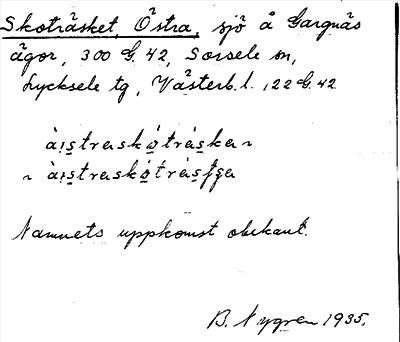 Skoträsket, Östra, sjö å Gargnäs
ägor, 300 G. 42, Sorsele sn,
Lycksele tg, Västerb. l., 22 G. 42
àı̣s̱traskó̱trȧs̱ka ~
~ àı̣s̱traskó̱trȧs̱ʃga
Namnets uppkomst obekant.
B. Nygren 1935.